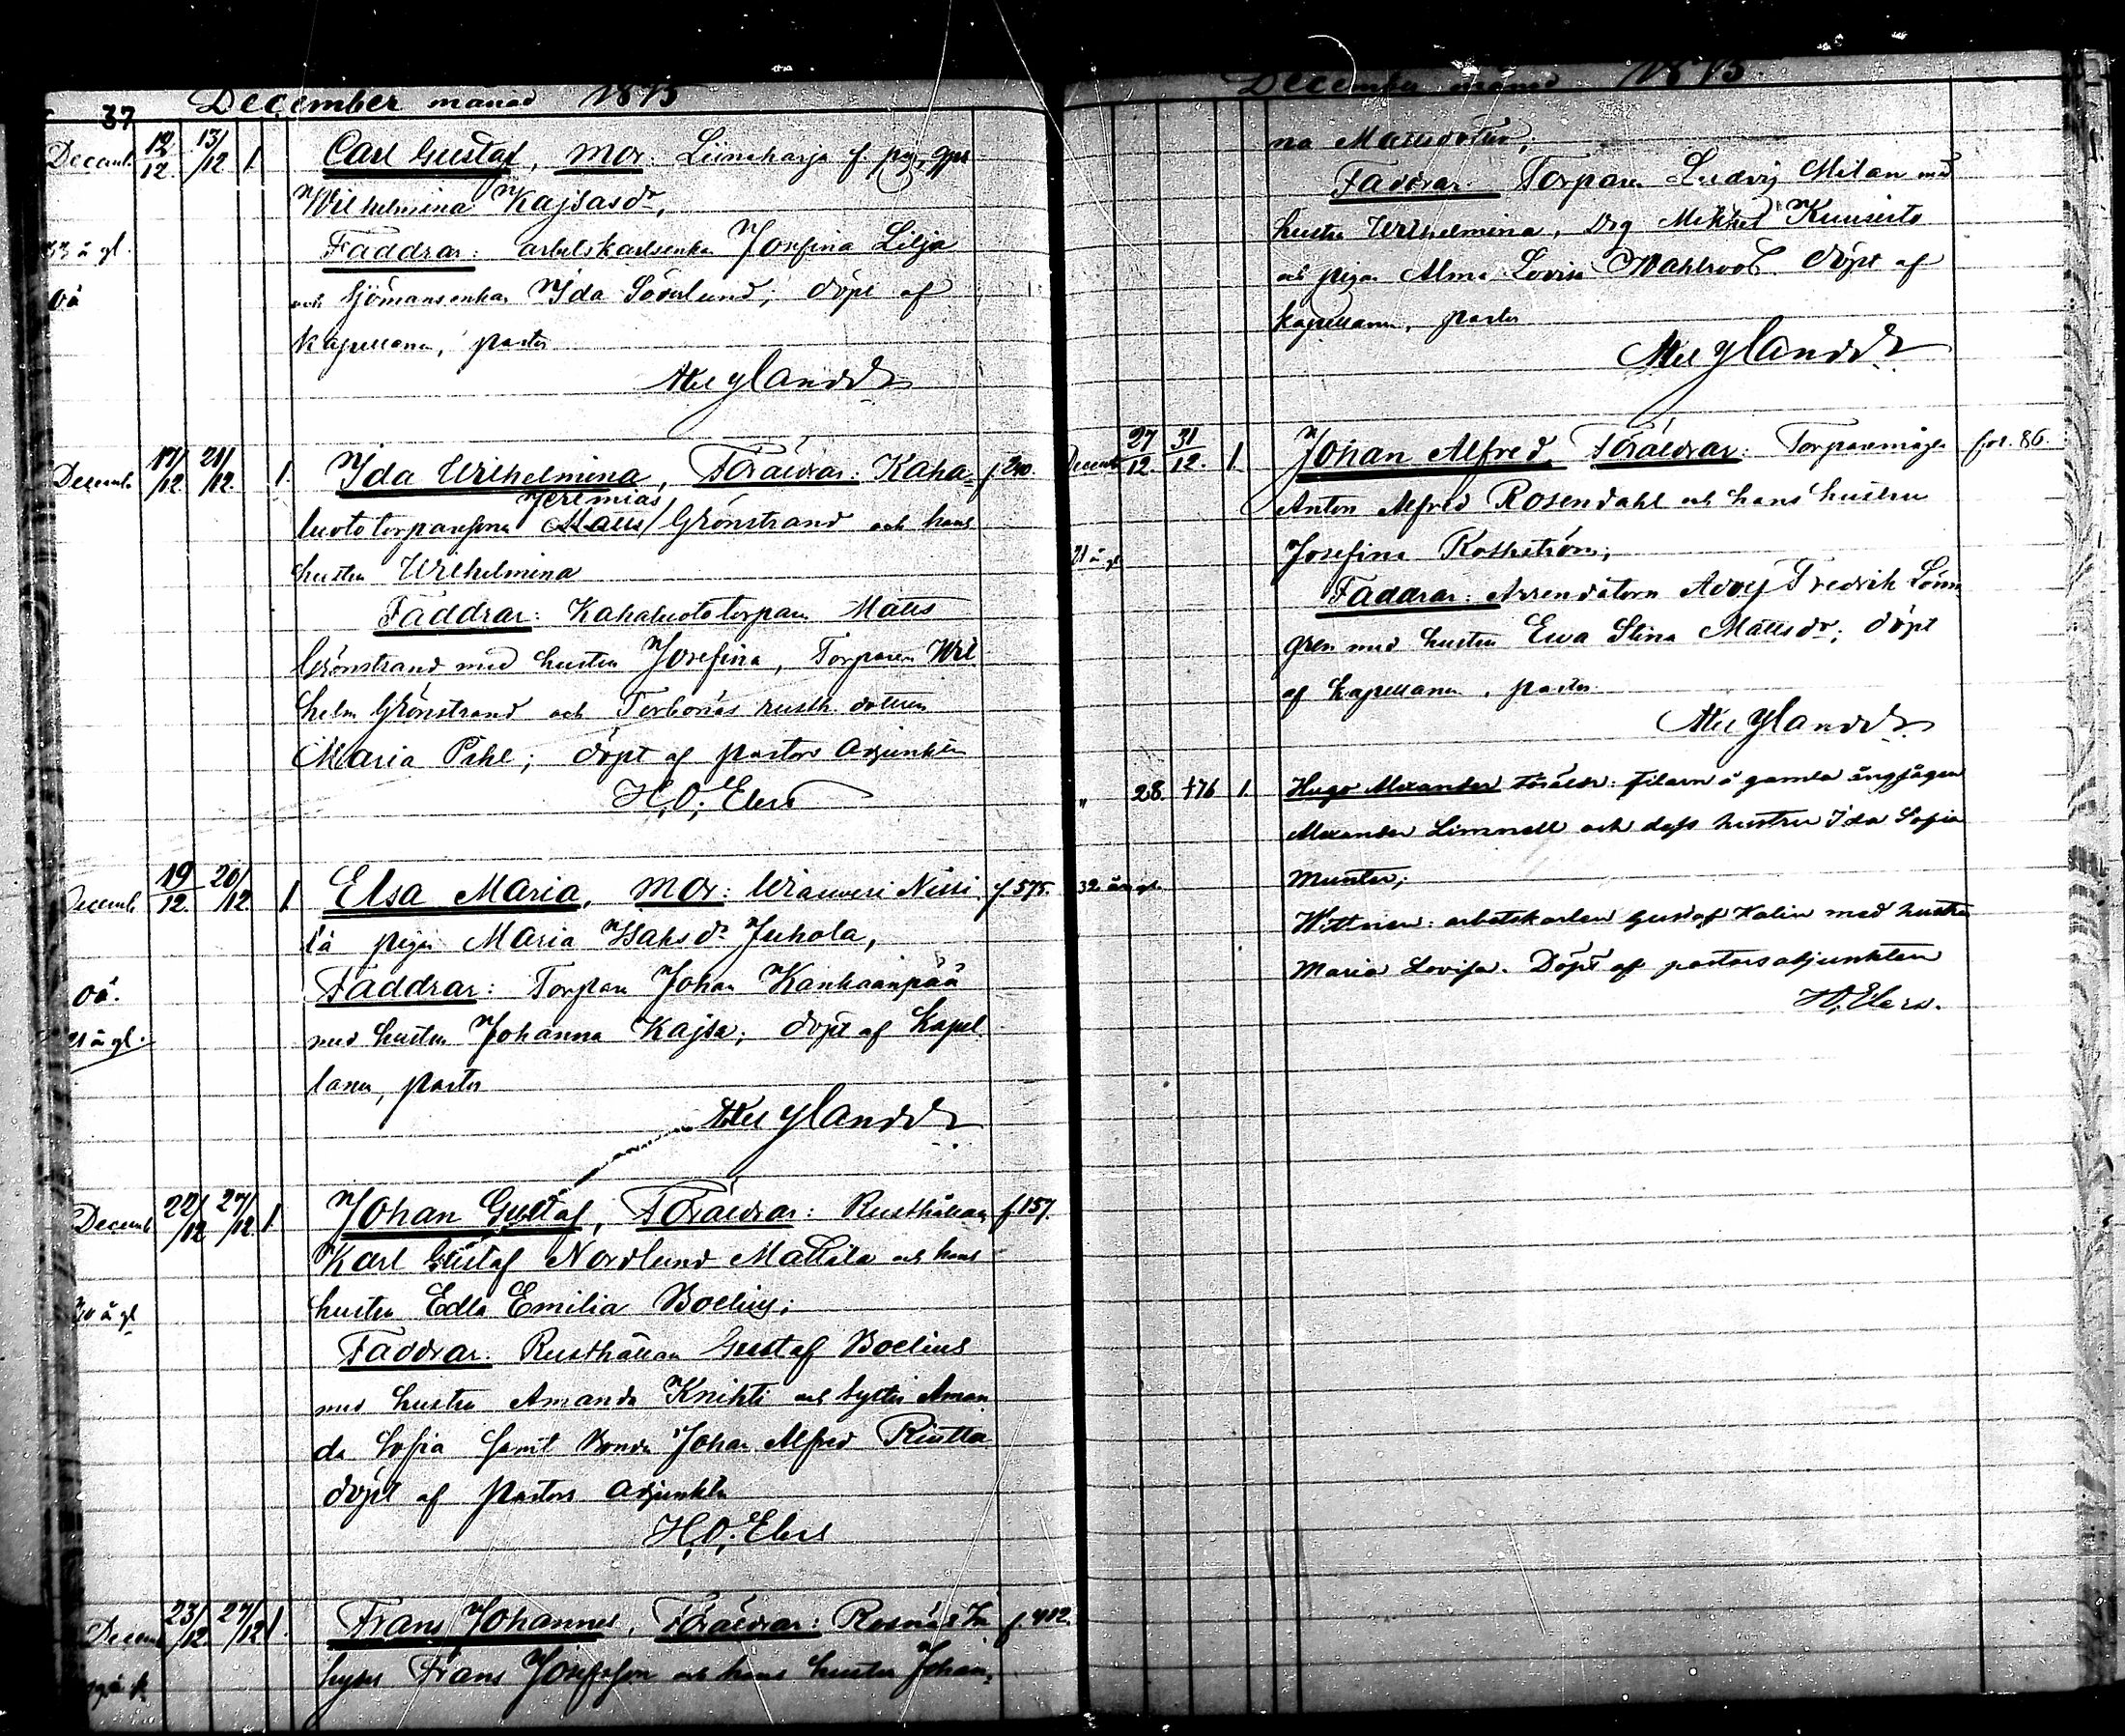 37 December månad 1875
Decemb. 12/12. 13/12 1. Carl Gustaf, Mor: f. pig.
Wilhelmina Kajsasdr,
33 å gl. Faddrar: arbetskarlsenkan Josefina Lilja
oä och Sjömansenkan Ida Söderlund; döpt af
kapellanen, pastor
Ylander
Decemb. 17/12 21/12. 1. Ida Wilhelmina, Föräldrar: Kaha-
luoto torparesonen Jeremias Matts Grönstrand och hans
hustru Wilhelmina
Faddrar: Kahaluoto torparen Matts
Grönstrand med hustru Josefina, Torparen Wil
helm Grönstrand och Torbonäs rusth. dottren
Maria Pihl; döpt af pastors adjunkten
H. O. Elers
Decemb. 19/12. 20/12 1. Elsa Maria, Mor: Nissi f. 575.
pigan Maria Isaksdr Juhola,
oä. Faddrar: Torparen Johan Kankaanpää
21 å gl. med hustru Johanna Kajsa; döpt af kapel
lanen, pastor
Ylander
Decemb 22/12 27/12. 1. Johan Gustaf, Föräldrar: Rusthållaren f. 157.
Karl Gustaf Nordlund Mattila och hans
hustru Edla Emilia Boelius;
30 å gl Faddrar: Rusthållaren Gustaf Boelius
med hustru Amanda Knihti och syster Aman
da Sofia samt Bonden Johan Alfred
döpt af Pastors adjunkten
H. O. Elers
Decem 23/12 27/12 1. Frans Johannes, Föräldrar: Rosnäs In f. 402.
hyses Frans Josefsson och hans hustru Johan-
December månad 1875.
na Mattsdotter;
Faddrar: Torparen Ludvig Milan med
hustru Wilhelmina, Drg Mikkel Kuusisto
och pigan Alma Lovisa Wahlroos. döpt af
kapellanen, pastor
Ylander
Decemb 27/12. 31/12. 1. Johan Alfred Föräldrar: Torparemågen fol. 86.
Anton Alfred Rosendahl och hans hustru
21 å gl Josefina Roskström;
Faddrar: Arrendatorn Adolf Fredrik Lönn
gren med hustru Ewa Stina Mattsdr; döpt
af kapellanen, pastor
Ylander
" 28. 1. Hugo Alexander föräldr: filaren å gamla ångsågen
Alexander Limnell och dess hustru Ida Sofia
32 år gl. Munter;
Wittnen: arbetskarlen Gustaf Kalin med hustru
Maria Lovisa. Döpt af pastorsadjunkten
H. O. Elers.